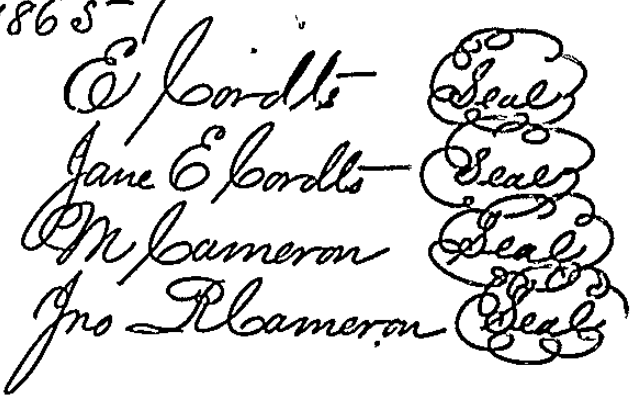 1865
E Cordts Seal
Jane E Cordts Seal
M Cameron Seal
Jno R Cameron Seal